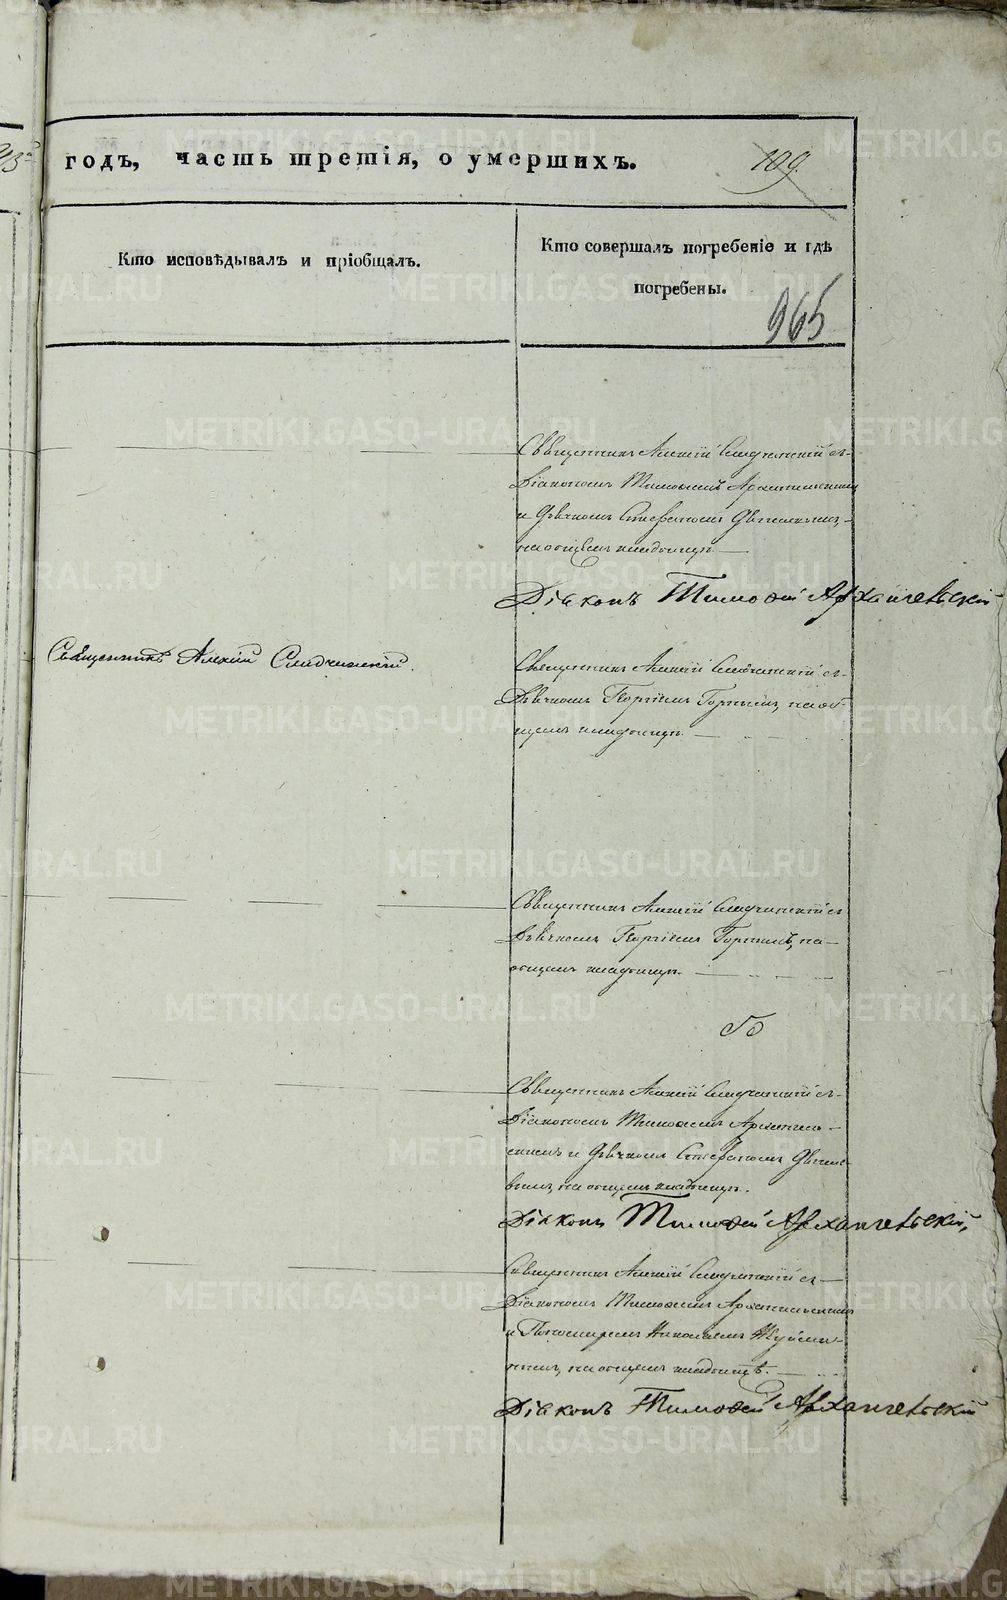 годъ, часть третія, о умершихъ.
109.
Кто исповѣдывалъ и пріобщалъ.
Кто совершалъ погребеніе и гдѣ
погребены.
965
Священникъ Алексій
Діакономъ Тимоѳеемъ Архангельскимъ
и Дьячкомъ Стефаномъ
на общемъ кладбищѣ.
Діаконъ Тимоѳей Архангельскій
Священникъ Алексій
Священникъ Алексій
Дьячкомъ Георгіемъ на об-
щемъ кладбищѣ.
Священникъ Алексій
Дьячкомъ Георгіемъ на
общемъ кладбищѣ.
Священникъ Алексій
Діакономъ Тимоѳеемъ Архангель-
скимъ и Дьячкомъ Стефаномъ
на общемъ кладбищѣ.
Діаконъ Тимоѳей Архангельскій,
Священникъ Алексій
Діакономъ Тимоѳеемъ Архангельскимъ
и Пономаремъ Николаемъ
на общемъ кладбищѣ.
Діаконъ Тимоѳей Архангельскій
METRIKI.GASO-URAL.RU